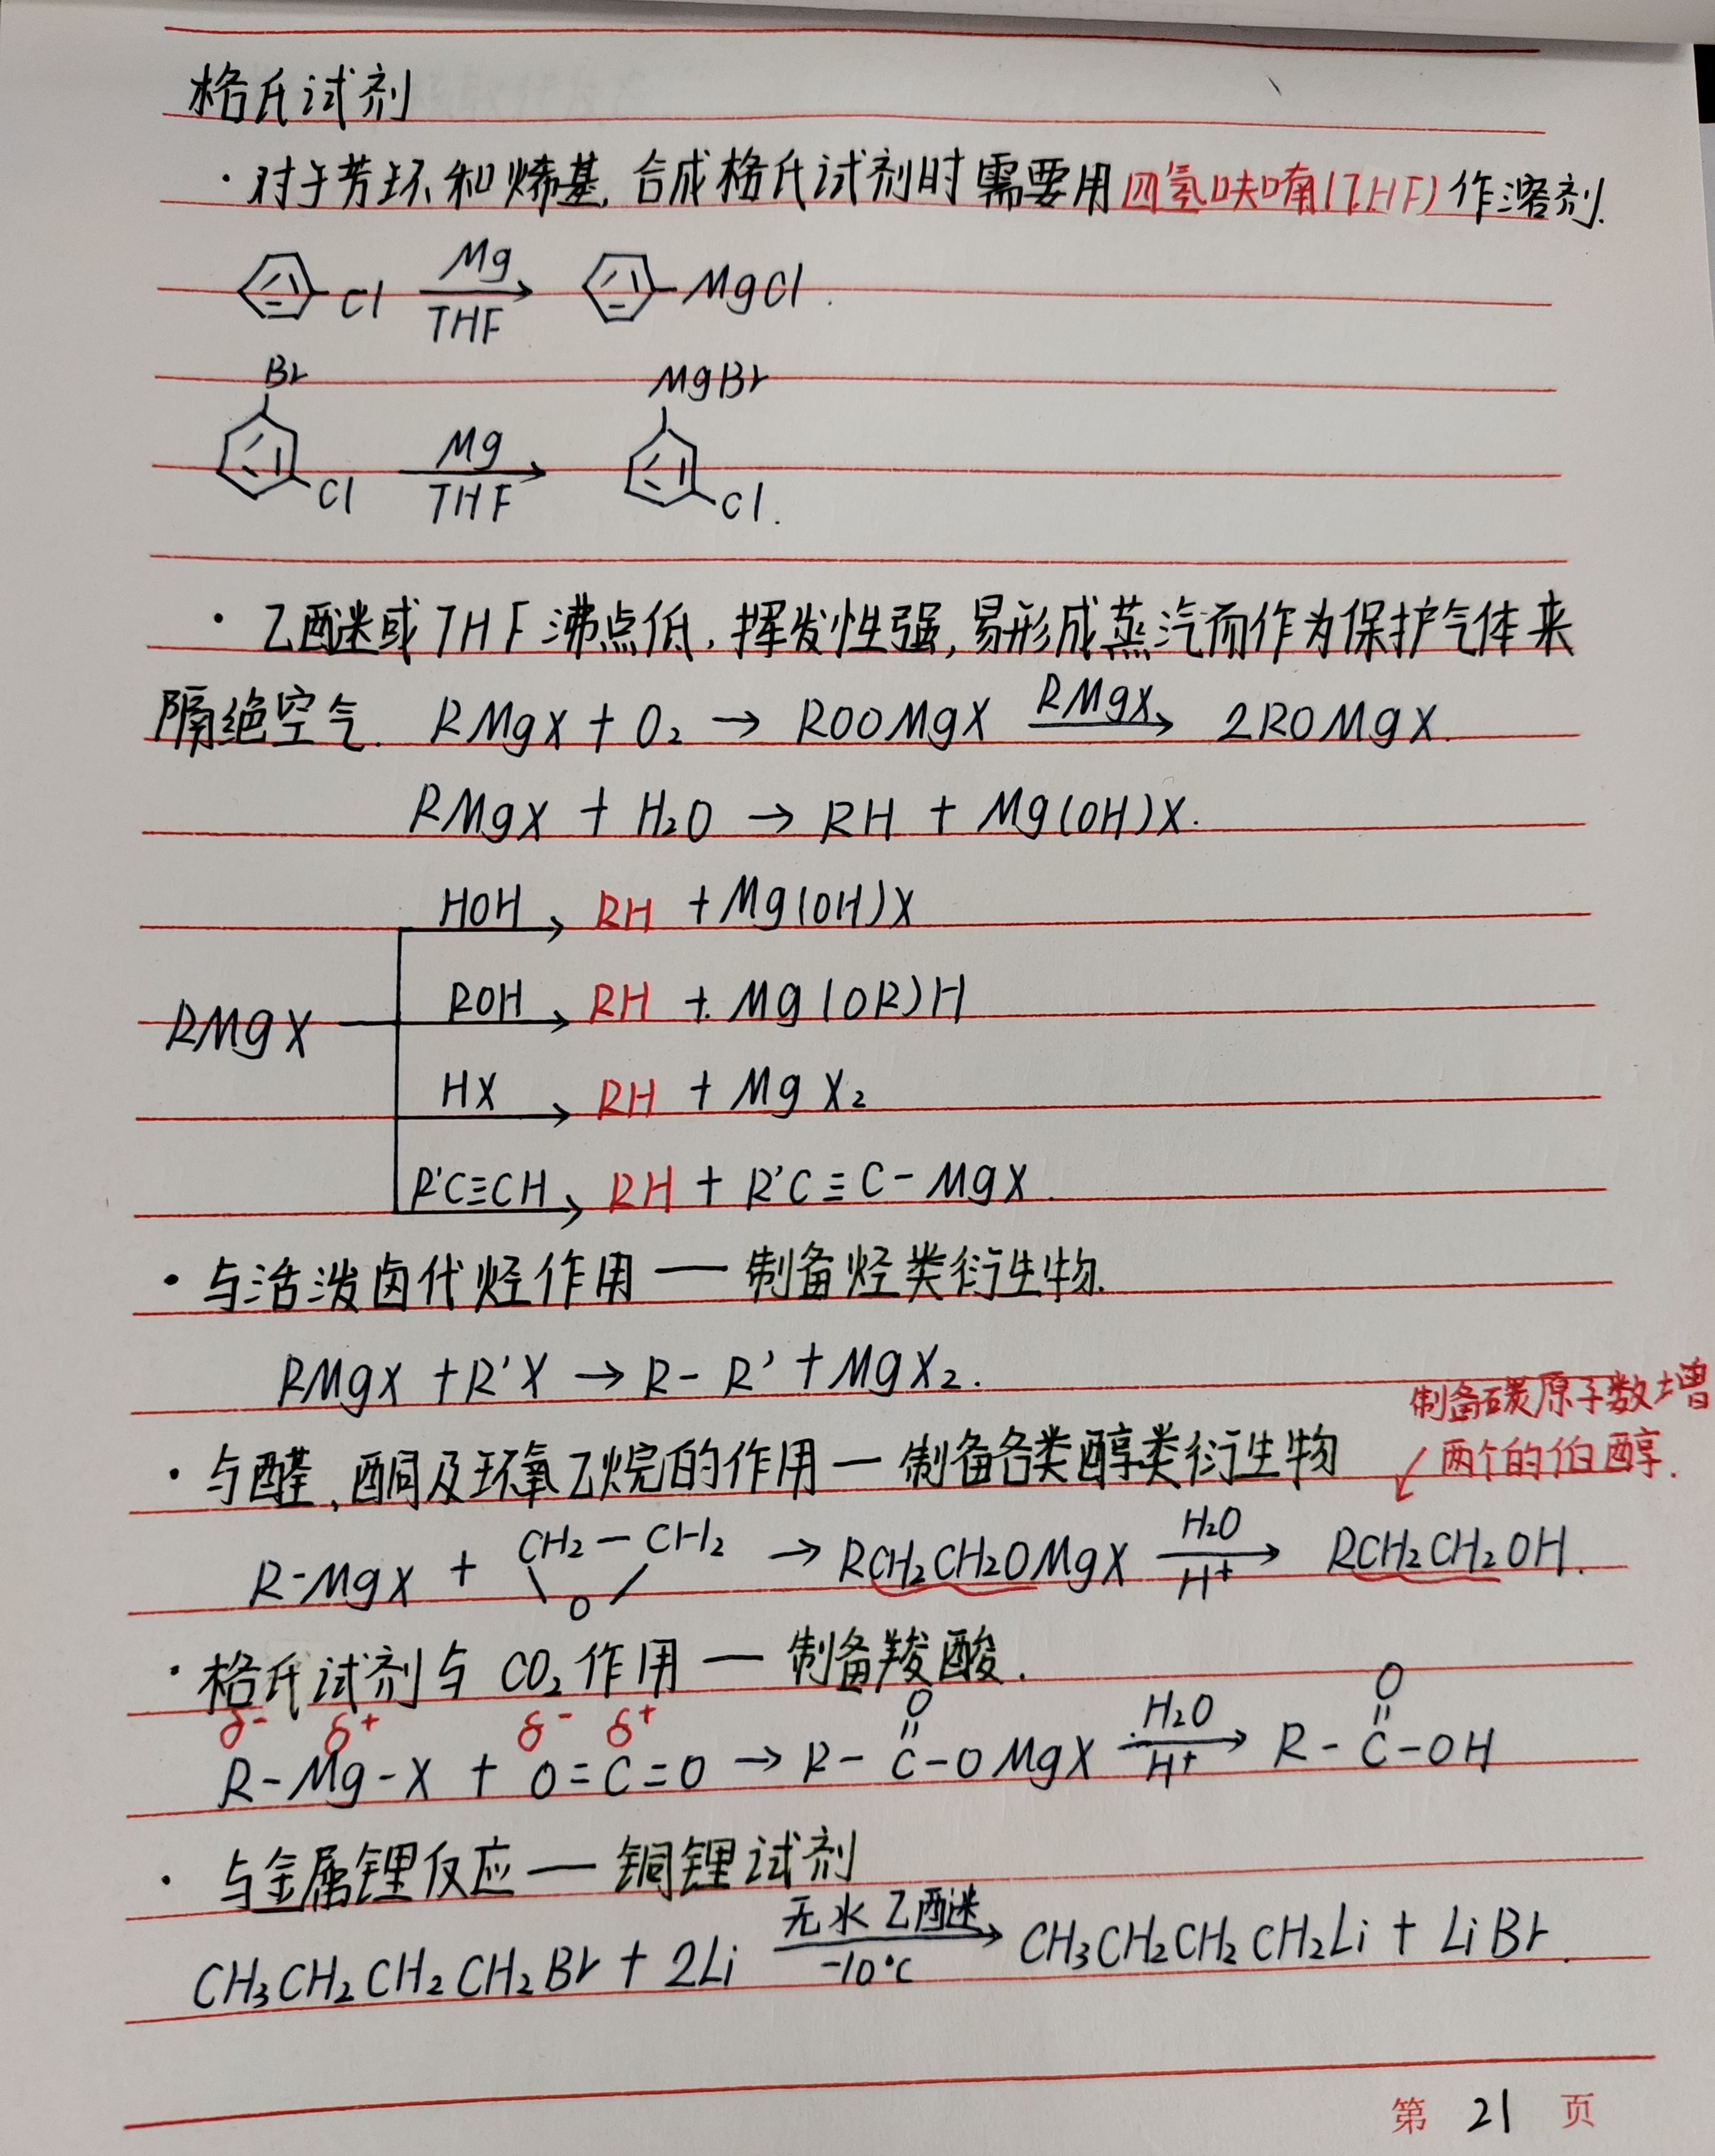 格氏试剂
·对于芳环和烯基,合成格氏试剂时需要用四氢呋喃(THF)作溶剂.
Cl Mg THF MgCl.
Br Cl Mg THF MgBr Cl.
·乙醚或THF沸点低,挥发性强,易形成蒸汽而作为保护气体来
隔绝空气. RMgX + O₂ → ROOMgX RMgX→ 2ROMgX.
RMgX + H₂O → RH + Mg(OH)X.
HOH→ RH + Mg(OH)X
RMgX ROH→ RH + Mg(OR)H
HX→ RH + MgX₂
R'C≡CH→ RH + R'C≡C-MgX.
·与活泼卤代烃作用—制备烃类衍生物.
RMgX + R'X → R-R' + MgX₂.
制备碳原子数增
两个的伯醇.
·与醛,酮及环氧乙烷的作用—制备各类醇类衍生物
R-MgX + CH₂-CH₂ \O/ → RCH₂CH₂OMgX H₂O H⁺→ RCH₂CH₂OH.
·格氏试剂与CO₂作用—制备羧酸.
δ- δ+ δ- δ+ O O
R-Mg-X + O=C=O → R-C-OMgX H₂O H⁺→ R-C-OH
·与金属锂反应—铜锂试剂
CH₃CH₂CH₂CH₂Br + 2Li 无水乙醚 -10°C→ CH₃CH₂CH₂CH₂Li + LiBr.
第 21 页